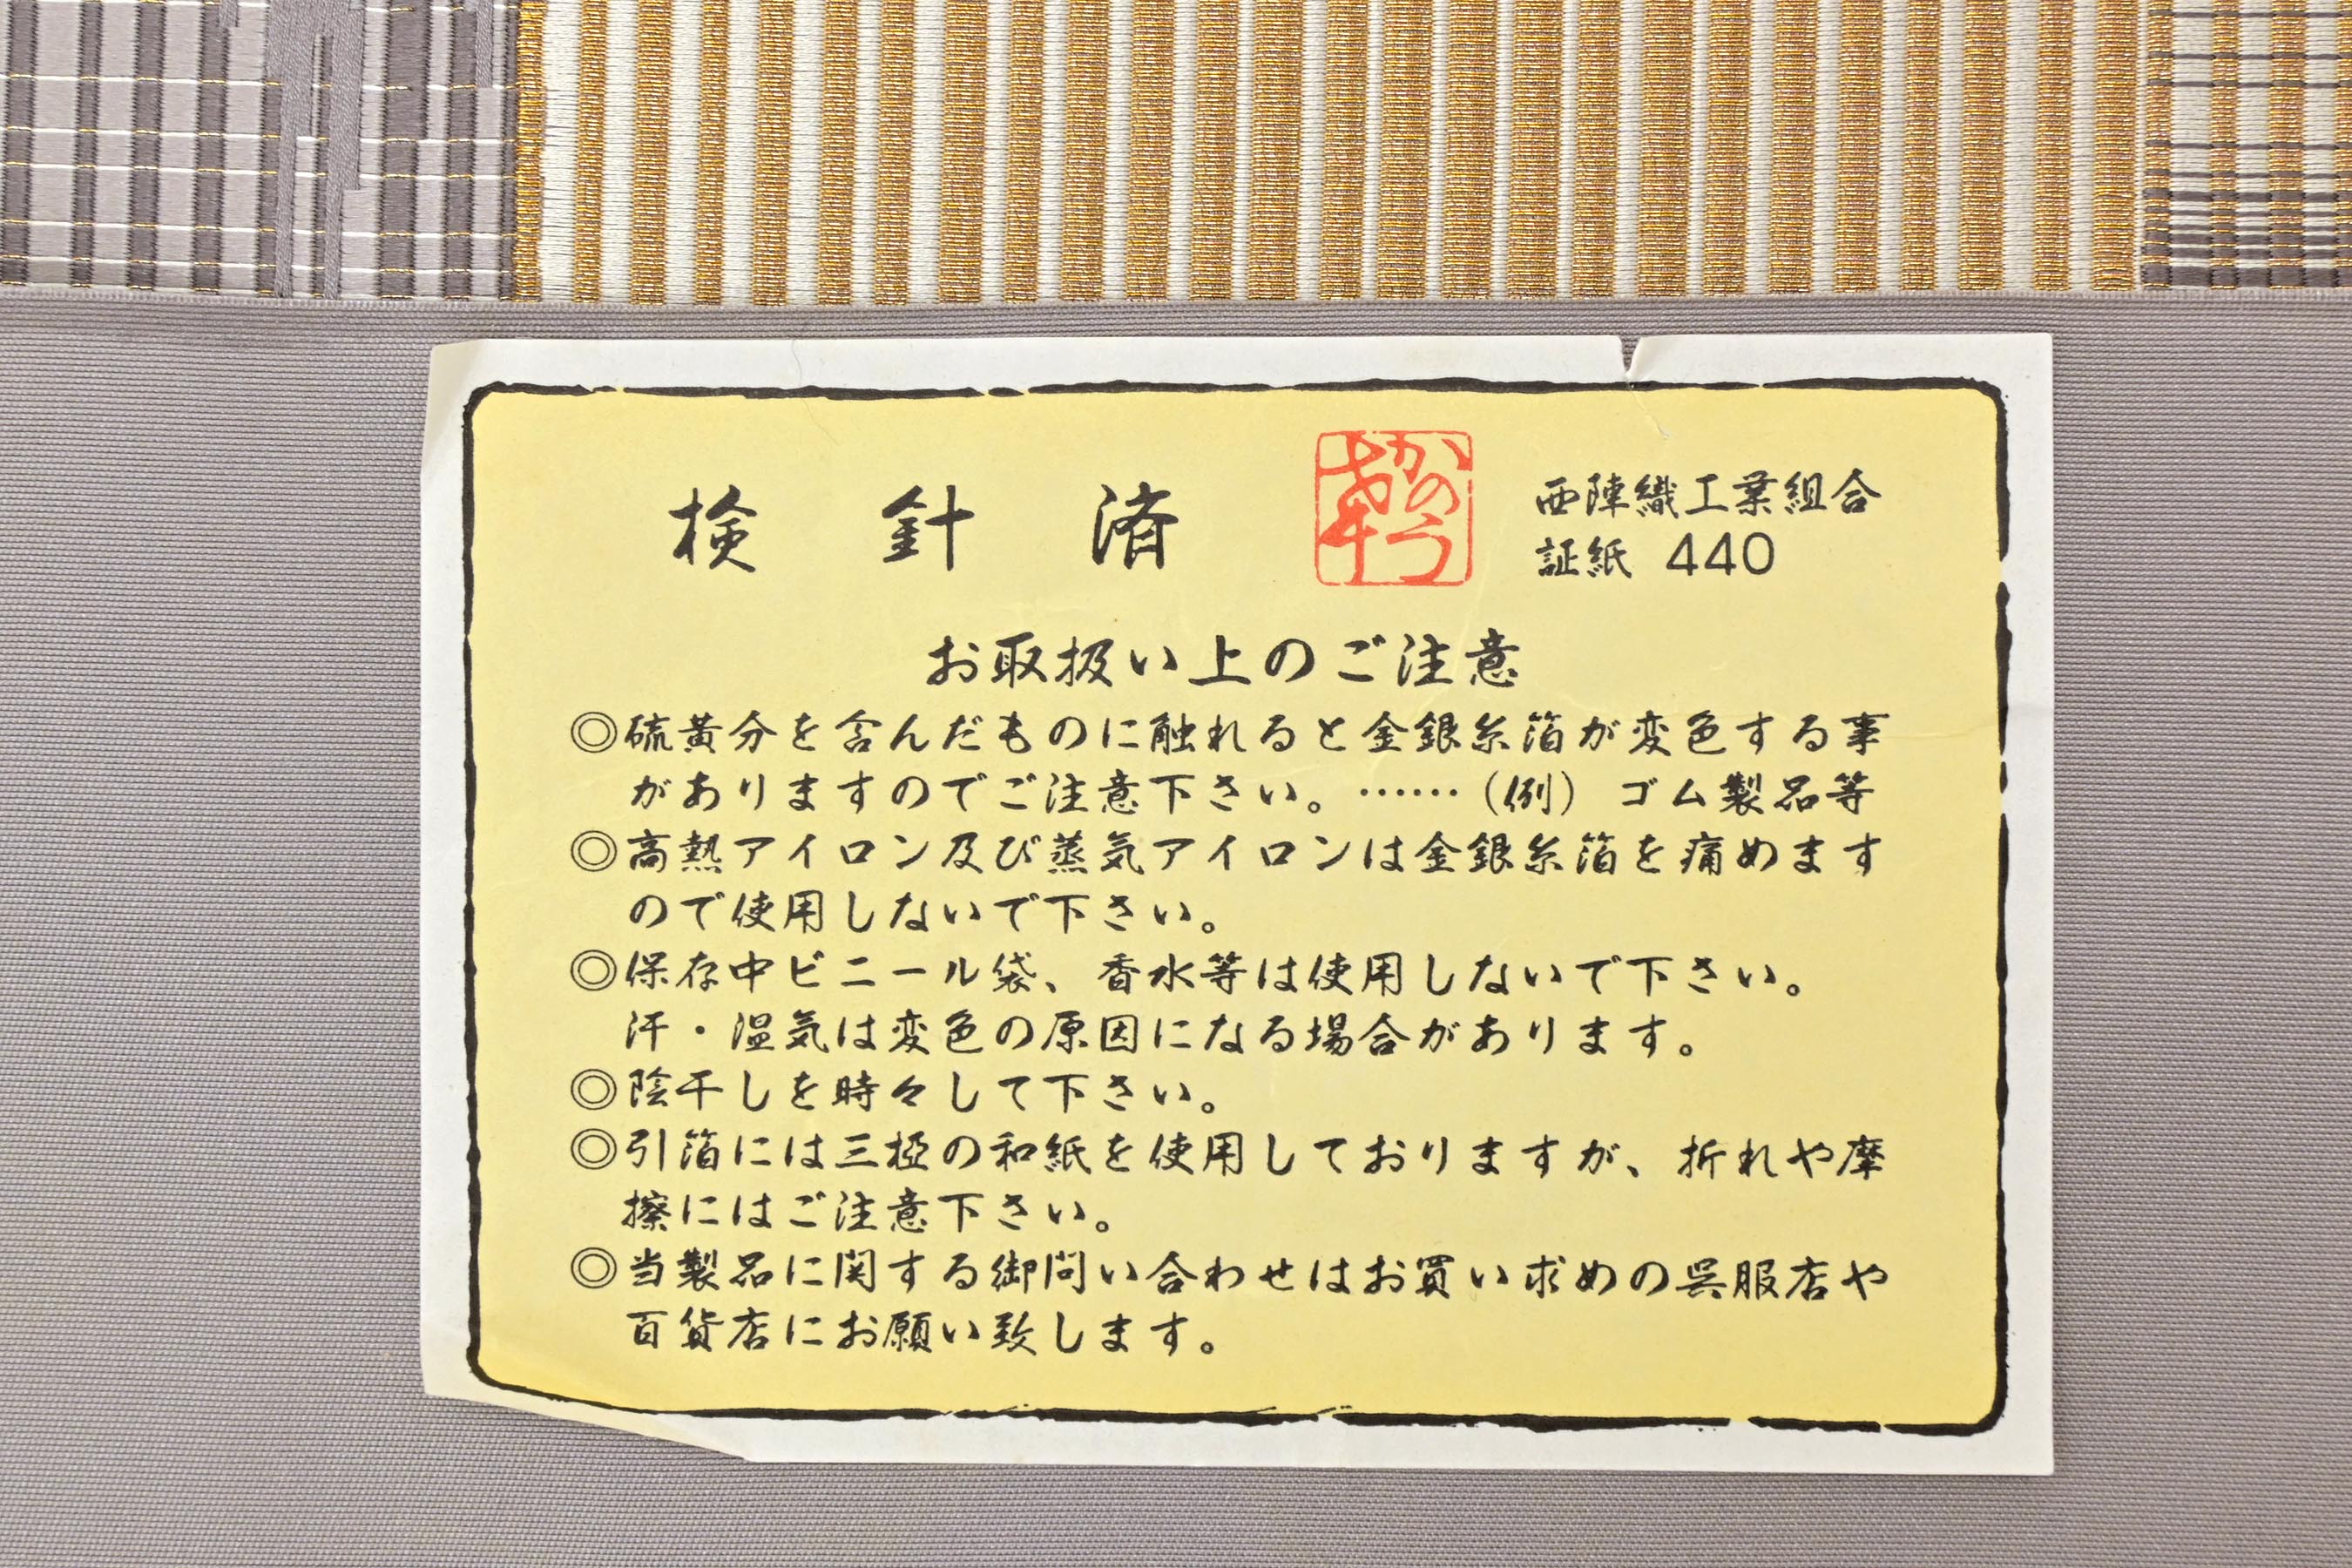 検針済
西陣織工業組合
証紙 440
お取扱い上のご注意
◎硫黄分を含んだものに触れると金銀糸箔が変色する事
がありますのでご注意下さい。……(例) ゴム製品等
◎高熱アイロン及び蒸気アイロンは金銀糸箔を痛めます
ので使用しないで下さい。
◎保存中ビニール袋、香水等は使用しないで下さい。
汗・湿気は変色の原因になる場合があります。
◎陰干しを時々して下さい。
◎引箔には三椏の和紙を使用しておりますが、折れや摩
擦にはご注意下さい。
◎当製品に関する御問い合わせはお買い求めの呉服店や
百貨店にお願い致します。